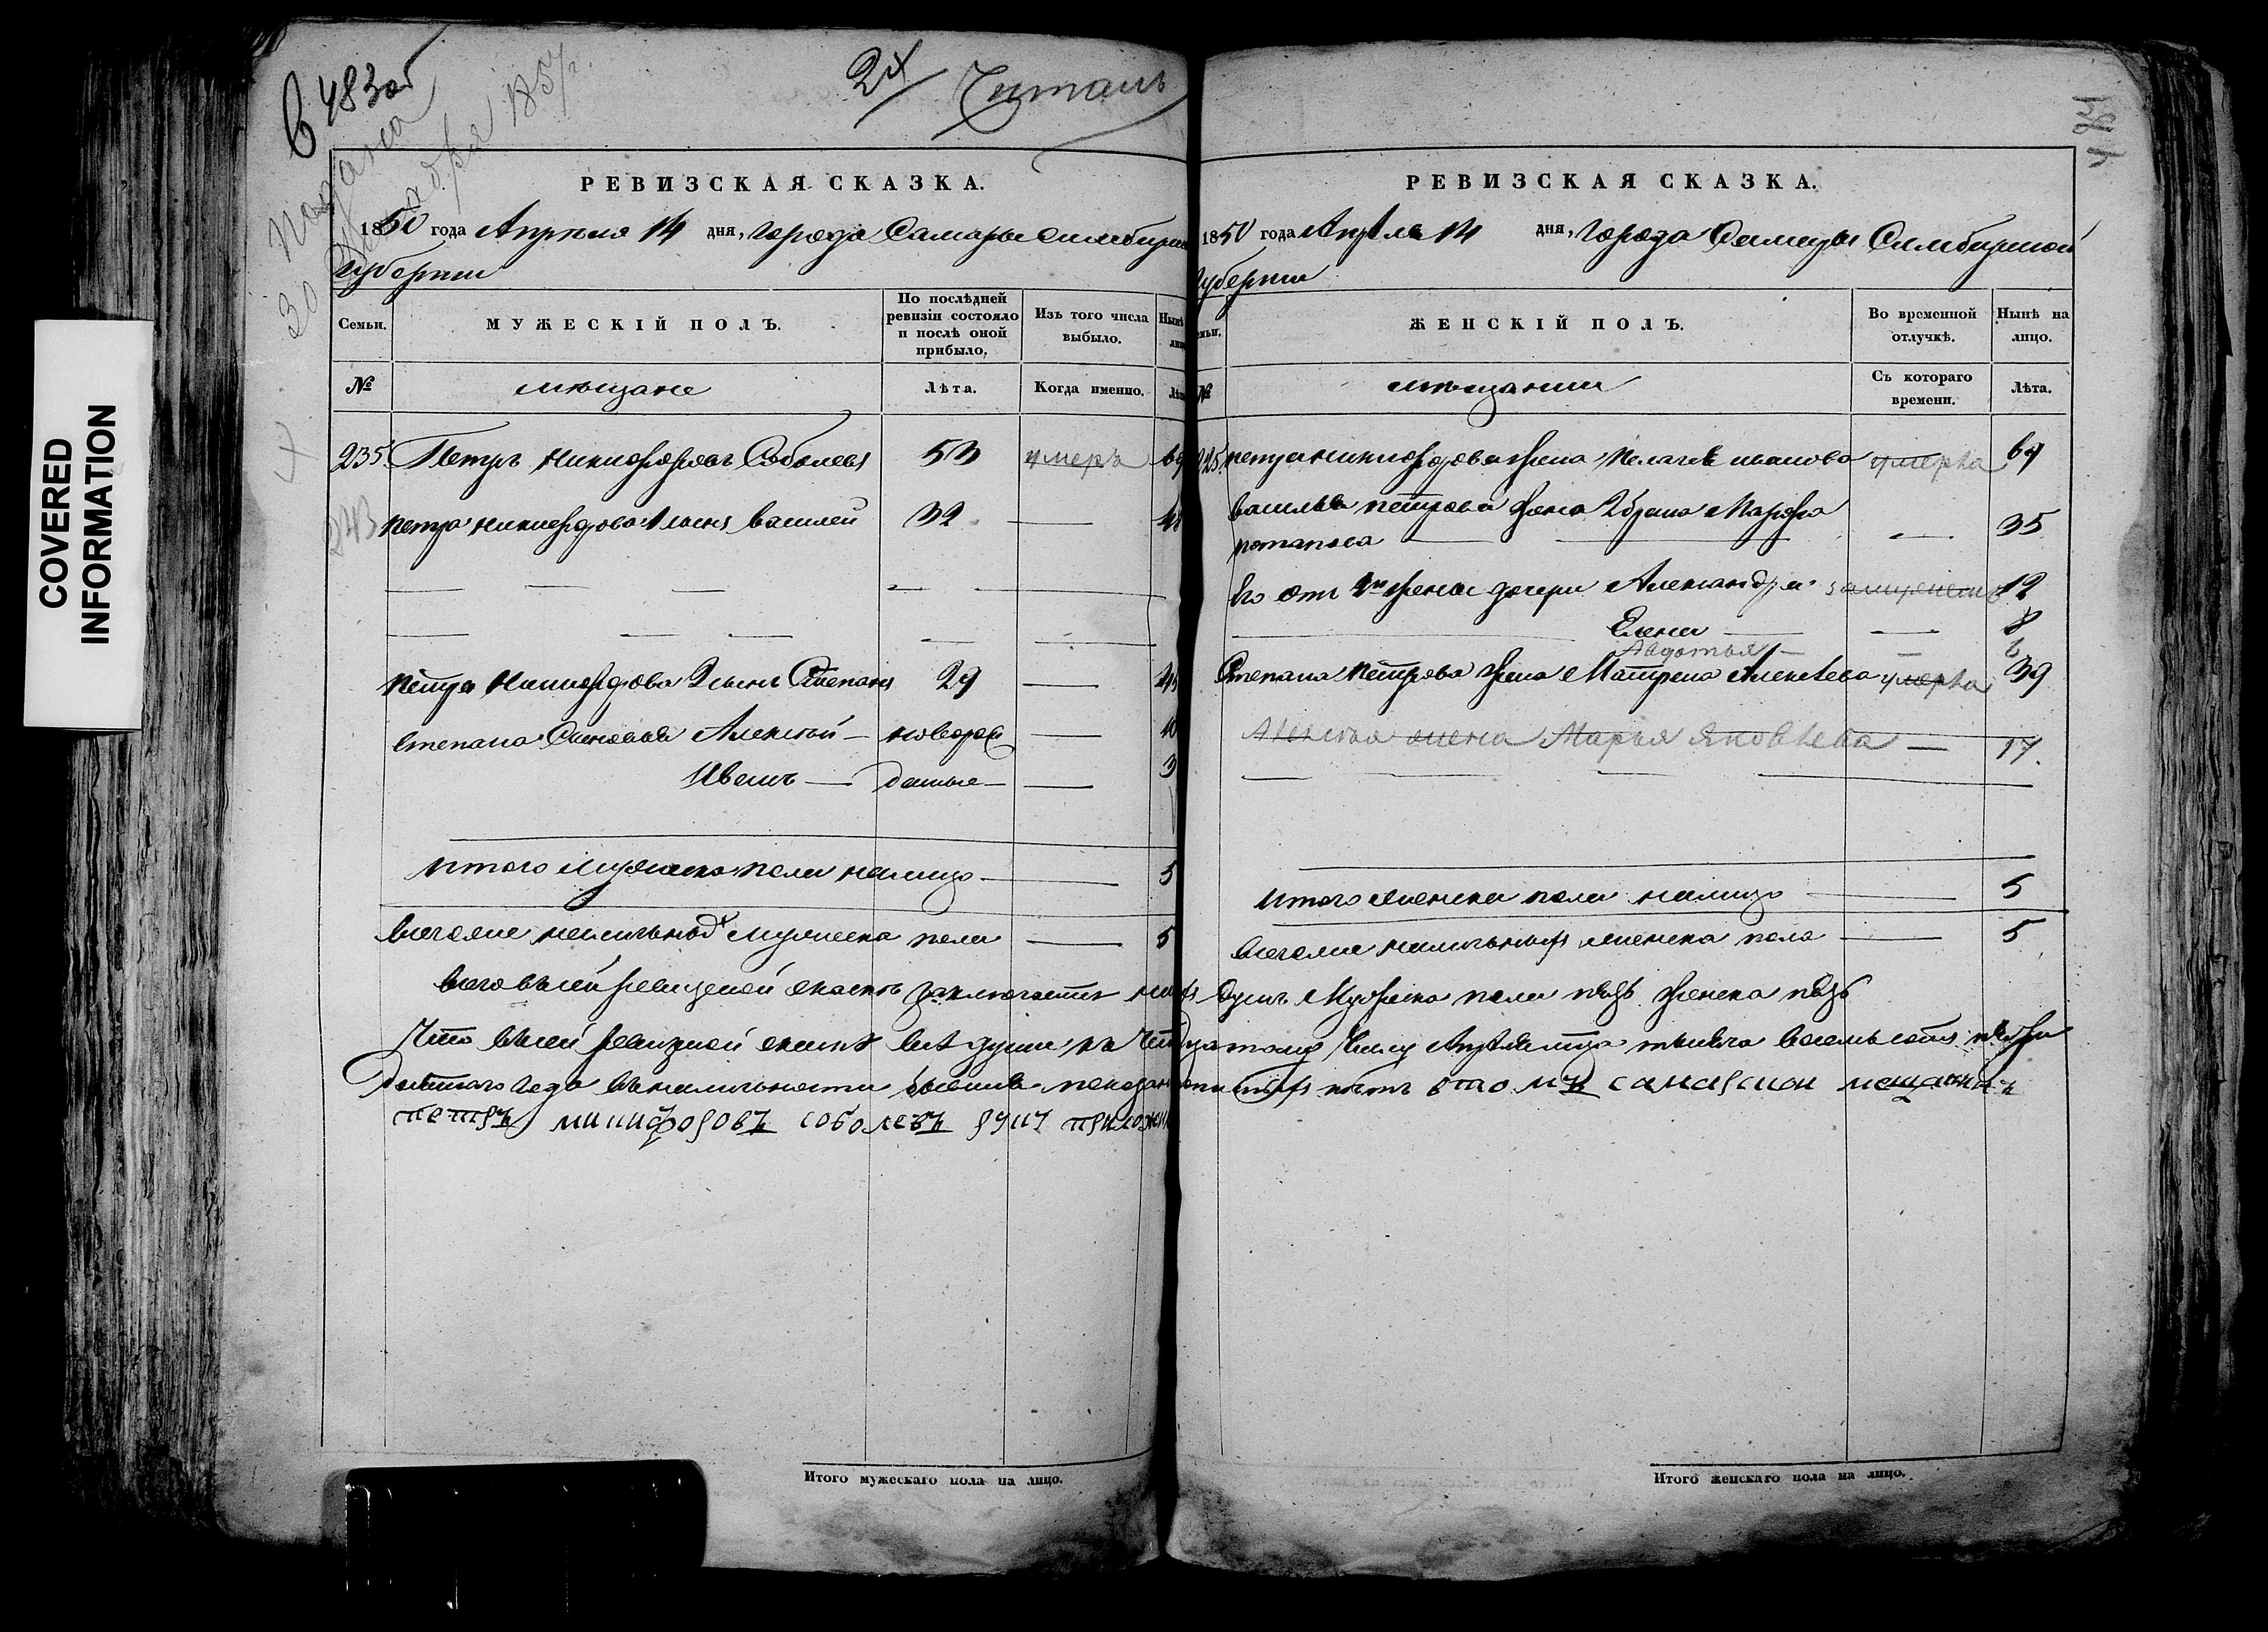 COVERED
INFORMATION
483об
Подана
30 Декабря 1857 г.
24 Читалъ
484
РЕВИЗСКАЯ СКАЗКА.
1850 года Апреля 14 дня, города Самары Симбирской
губернии
Семьи.
МУЖЕСКІЙ ПОЛЪ.
По послѣдней
ревизіи состояло
и послѣ оной
прибыло.
Изъ того числа
выбыло.
Нынѣ
№
мещане
Лѣта.
Когда именно.
235. Петръ Никифоровъ Соболевъ 53 умеръ 69
243
Петра Никифорова 1 сынъ Василей 32 — 48
Петра Никифорова 2 сынъ Степанъ 29 — 45
Степана Сыновья Алексей — новорож — 10
Иванъ — данные — 3
Итого мужеска пола налицо — 5
Всего же наличныхъ мужеска пола — 5
Итого мужескаго пола на лицо.
РЕВИЗСКАЯ СКАЗКА.
1850 года Апреля 14 дня, города Самары Симбирской
губернии
ЖЕНСКІЙ ПОЛЪ.
Во временной
отлучкѣ.
Нынѣ на
лицо.
№
мещанки
Съ котораго
времени.
Лѣта.
Петра Никифорова жена Пелагея Иванова умерла 69
Василья Петрова жена 2 брака Марфа
Потапова — 35
Его отъ 1й жены дочери Александра замужемъ 12
Елена — 8
Авдотья — 6
Степана Петрова жена Матрена Алексеева умерла 39
Алексея жена Марья Яковлева — 17.
Итого женска пола налицо — 5
Всего же наличныхъ женска пола — 5
Всего въ сей ревизской сказкѣ заключается душъ мужеска пола пять женска пять
Что въ сей ревизской сказкѣ все души къ четырнадцатому числу Апреля тысяча восемь сотъ
петръ никифоровъ соболевъ руку приложи
Итого женскаго пола на лицо.